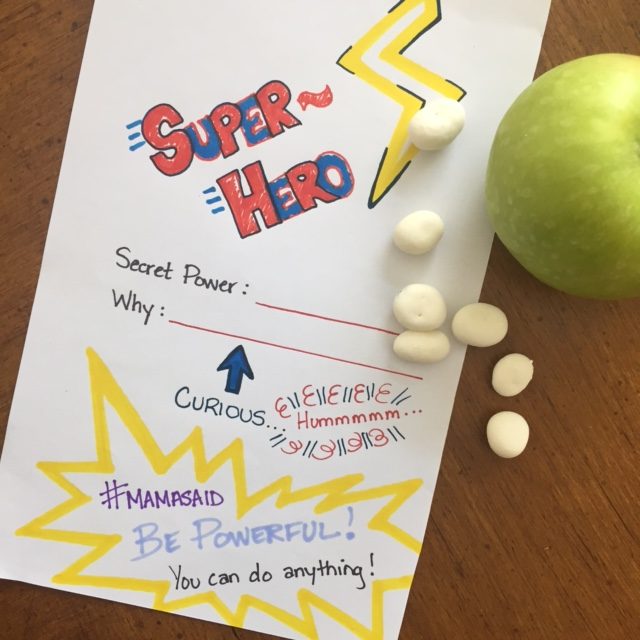 SUPER~
HERO
Secret Power: ____________
Why: ____________
CURIOUS...
Hummmmm...
#MAMASAID
BE POWERFUL!
You can do anything!